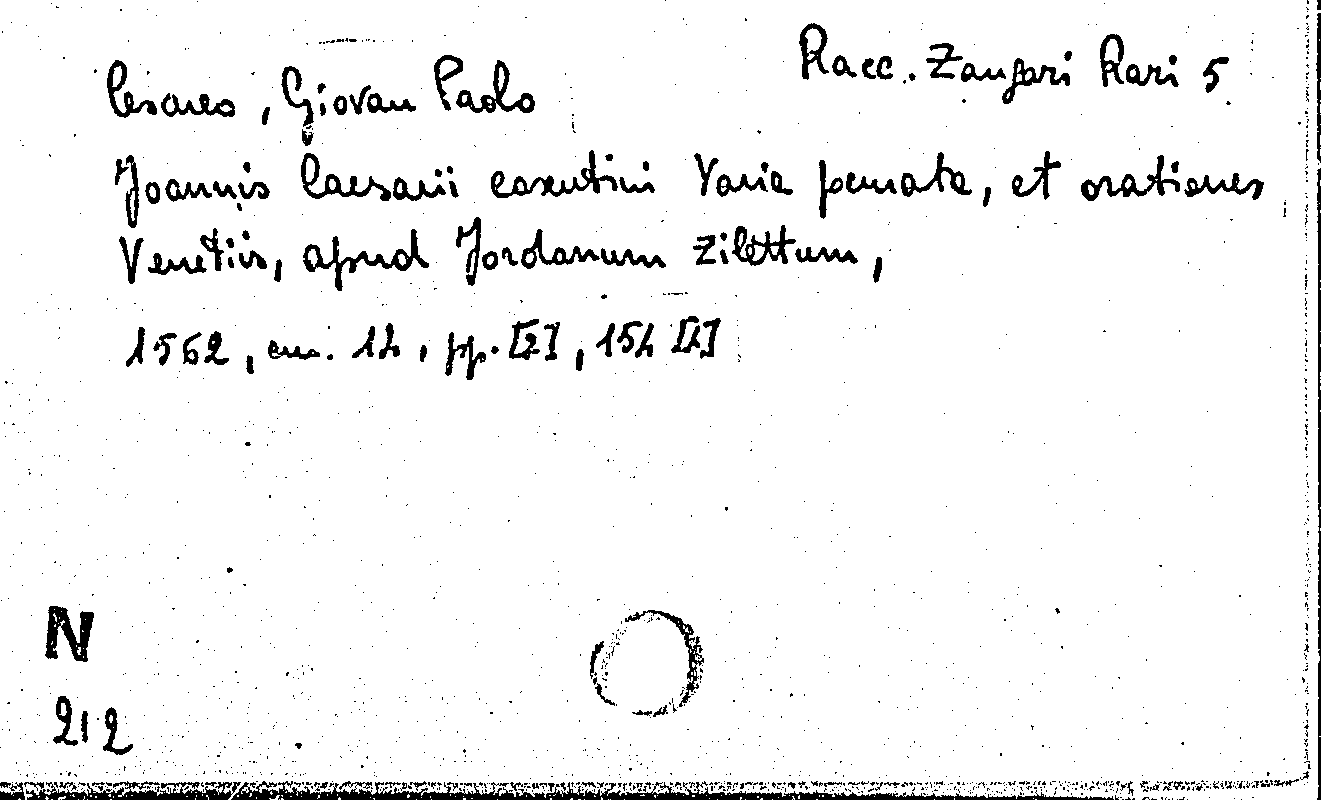 Racc. Zangari Rari 5
Cesareo, Giovan Paolo
Joannis Caesarii cosentini Varia pemata, et orationes
Venetiis, apud Jordanum Zilettum,
1562, cm. 14, pp. [2], 154 [4]
N
212